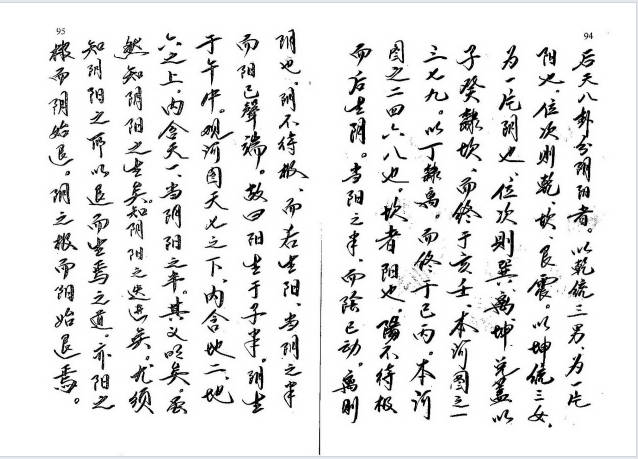 94
后天八卦分阴阳者。以乾统三男。为一片
阳也。位次则乾、坎、艮、震。以坤统三女。
为一片阴也、位次则巽、离、坤、兑、盖以
子癸隶坎、而终于亥壬、本河图之一
三七九。以丁隶离。而终于巳丙。本河
图之二四六八也。坎者阳也。阳不待极
而后生阴。当阳之半、而陰已动。离则
95
阴也、阴不待极、而若生阳、当阴之半
而阳已肇端。故曰阳生于子半。阴生
于午中。观河图天七之下、内含地二、地
六之上、内含天一、当阴阳之半。其义明矣。
然知阴阳之生矣。知阴阳之迭矣。尤须
知阴阳之所以退而生焉之道。亦阳之
极而阴始退。阴之极而阳始退焉。